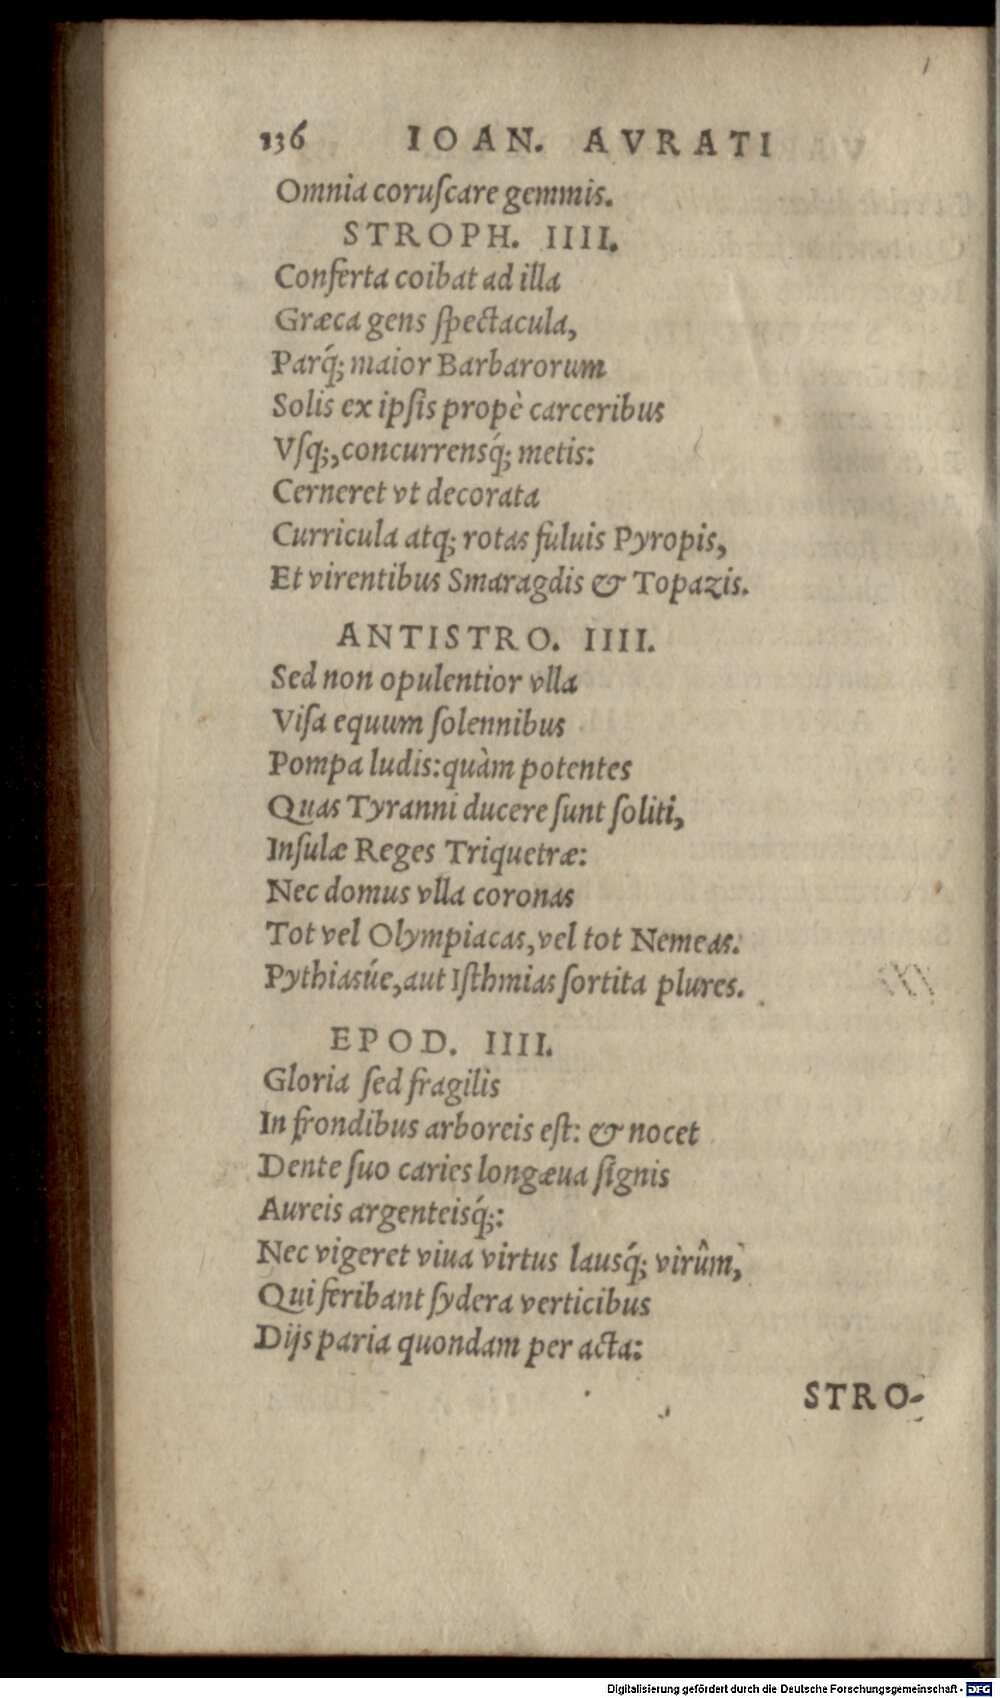 136 IOAN. AVRATI
Omnia coruſcare gemmis.
STROPH. IIII.
Conferta coibat ad illa
Græca gens ſpectacula,
Parq́; maior Barbarorum
Solis ex ipſis propè carceribus
Vſq;, concurrensq́; metis:
Cerneret vt decorata
Curricula atq; rotas fuluis Pyropis,
Et virentibus Smaragdis & Topazis.
ANTISTRO. IIII.
Sed non opulentior vlla
Viſa equum ſolennibus
Pompa ludis: quàm potentes
Quas Tyranni ducere ſunt ſoliti,
Inſulæ Reges Triquetræ:
Nec domus vlla coronas
Tot vel Olympiacas, vel tot Nemeas.
Pythiasúe, aut Iſthmias ſortita plures.
EPOD. IIII.
Gloria ſed fragilis
In frondibus arboreis eſt: & nocet
Dente ſuo caries longæua ſignis
Aureis argenteisq́;:
Nec vigeret viua virtus lausq́; virûm,
Qui feribant ſydera verticibus
Dijs paria quondam per acta:
STRO-
Digitalisierung gefördert durch die Deutsche Forschungsgemeinschaft - DFG